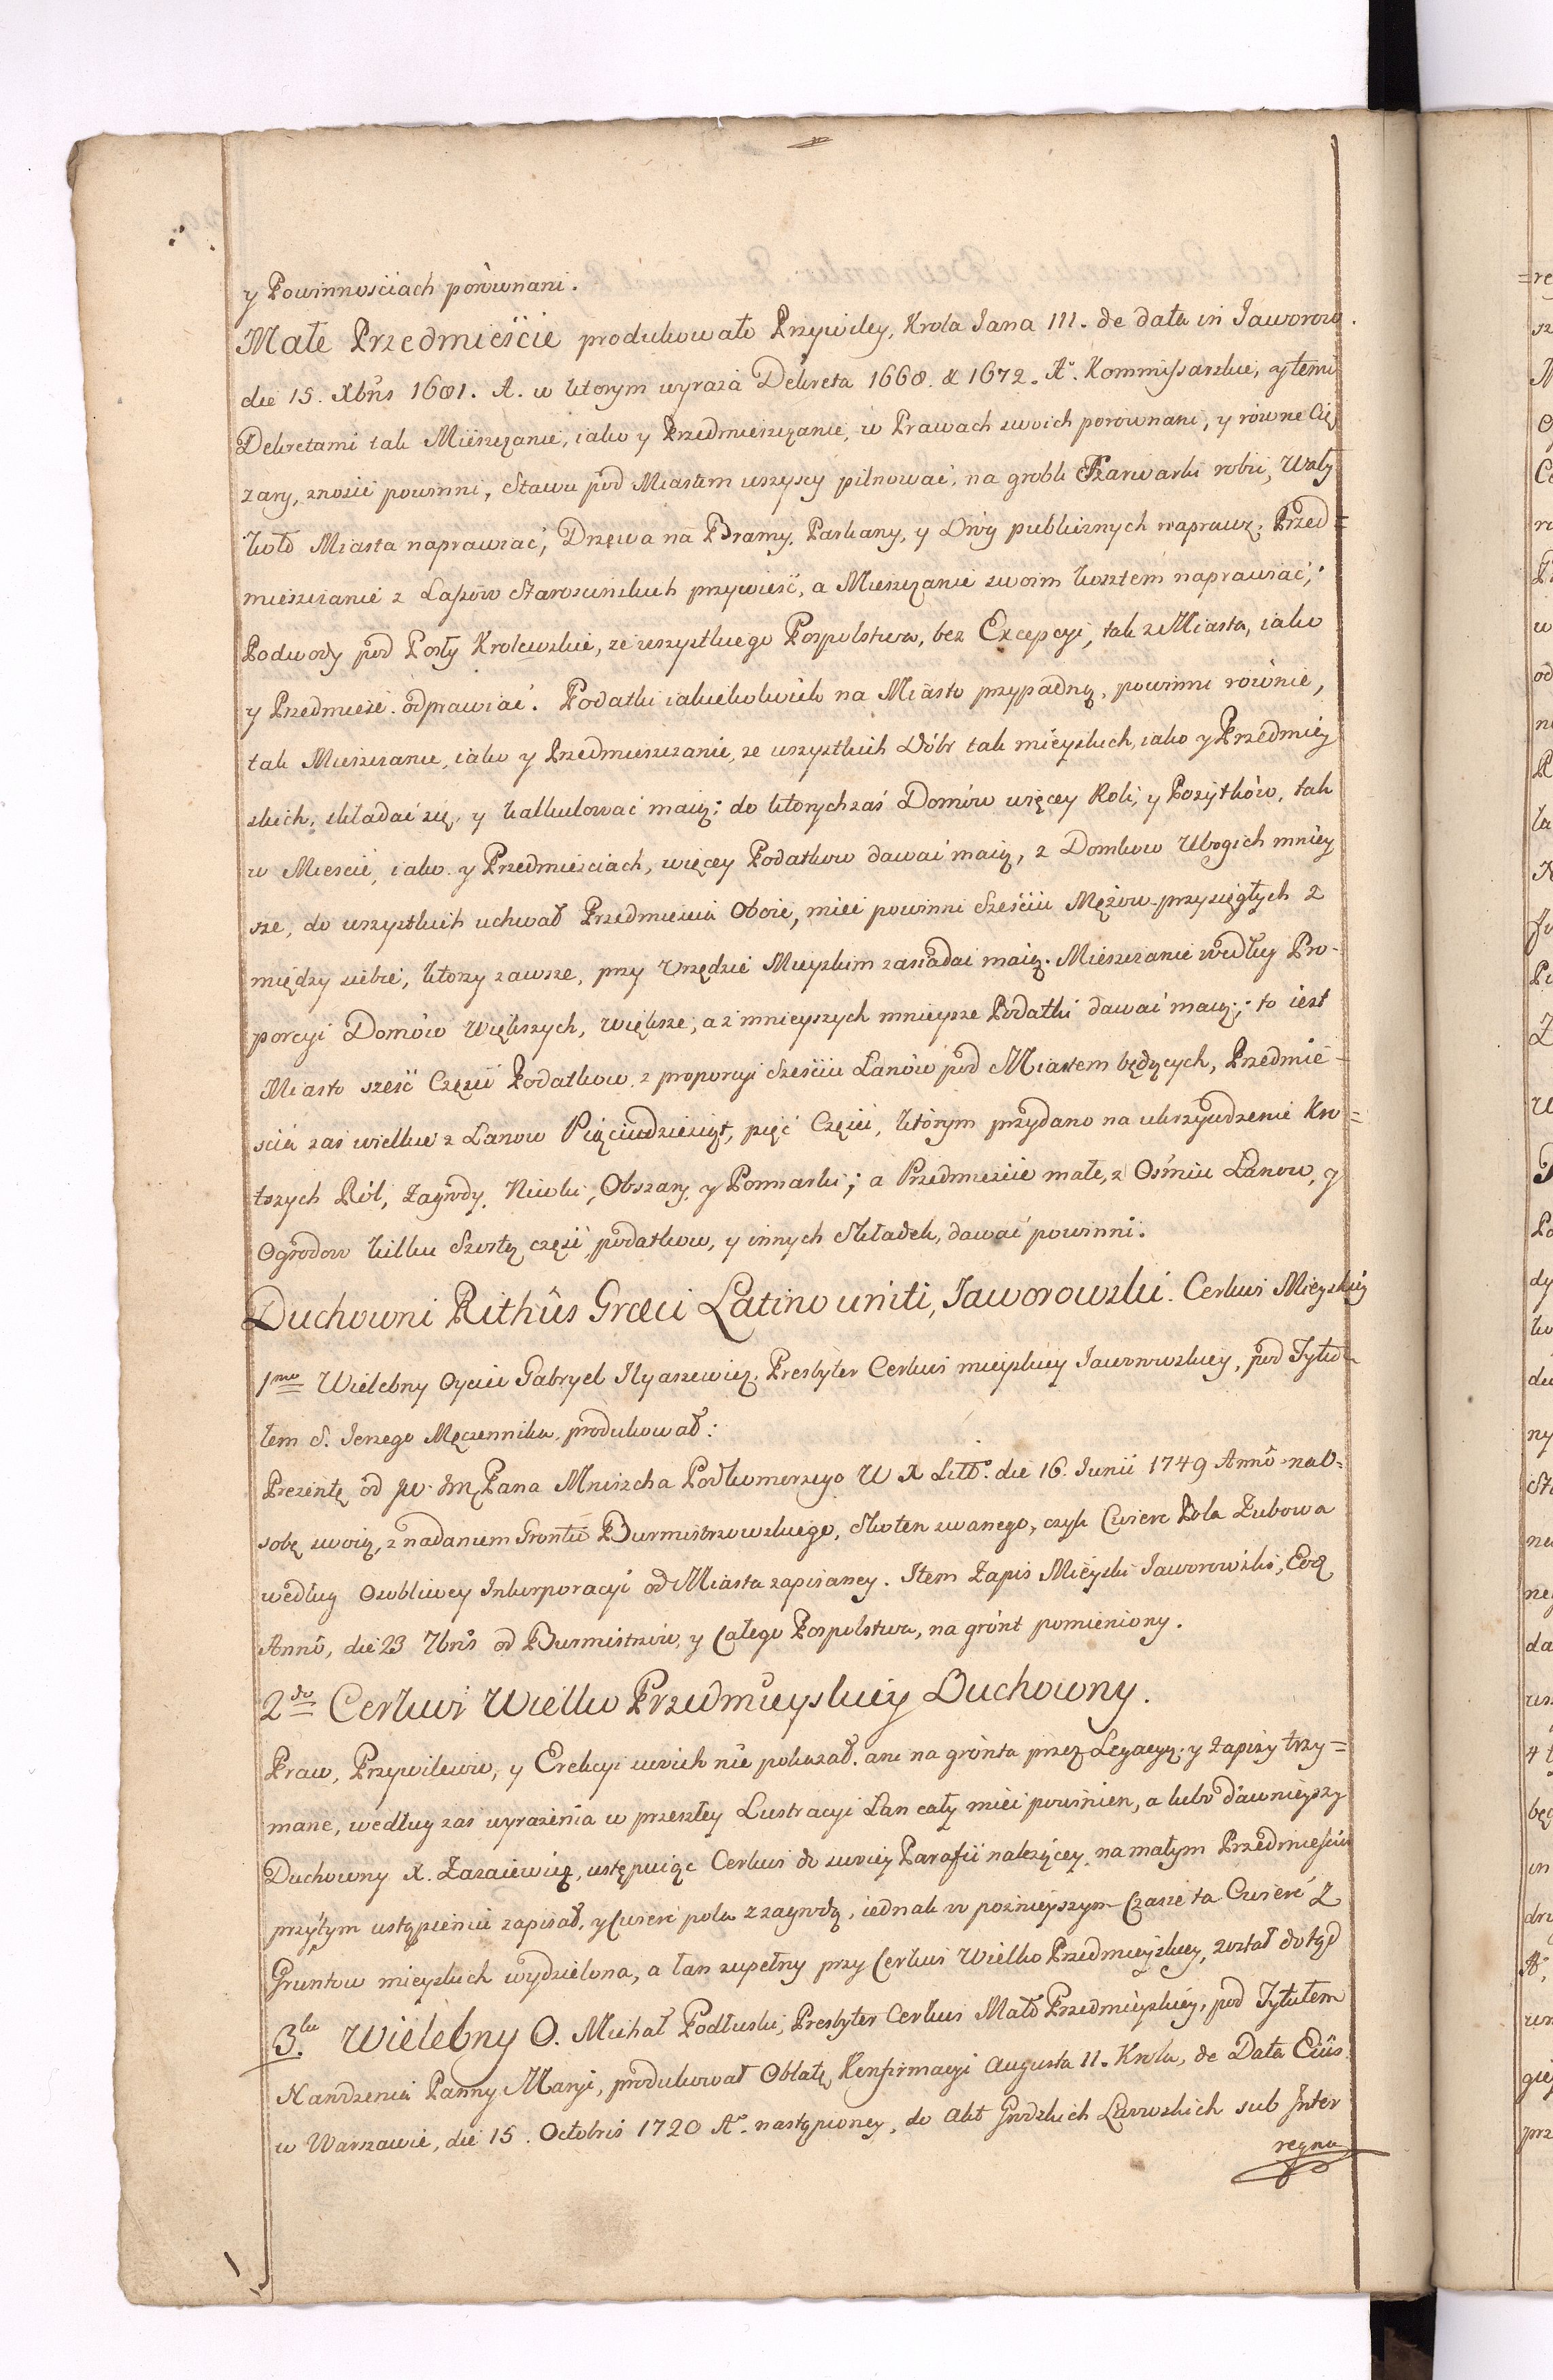 y Powinnosciach porównani.
Małe Przedmieście produkowało Przywiley, Krola Jana III. de data in Jaworow.
die 15. Xbris 1681. A. w ktorym wyraża Dekreta 1668. & 1672. Aº. Kommissarskie, y temi
Dekretami tak Mieszczanie, iako y Przedmieszczanie, w Prawach swoich porownani, y równe Cię
zary, znosić powinni, Stawu pod Miastem wszyscy pilnować, na grobli Szarwarki robić, Wały
koło Miasta naprawiać, Drzewa na Bramy, Parkany, y Dróg publicznych naprawę, Przed=
mieszczanie z Lasów Starościnskich przywieść, a Mieszczanie swoim kosztem naprawiać;
Podwody pod Posły Krolewskie, ze wszystkiego Pospolstwa, bez Excepcyi, tak z Miasta, iako
y Przedmieść. odprawiać. Podatki iakiekolwiek na Miasto przypadną, powinni równie,
tak Mieszczanie, iako y Przedmieszczanie, ze wszystkich Dóbr tak mieyskich, iako y Przedmiey
skich, składać się, y kalkulować maią; do ktorych zaś Domów więcey Roli, y Pożytków, tak
w Mieście, iako y Przedmieściach, więcey Podatkow dawać maią, z Domkow Ubogich mniey
sze, do wszystkich uchwał Przedmieścia Oboie, mieć powinni Sześciu Mężów przysięgłych z
między siebie, ktorzy zawsze, przy Urzędzie Mieyskim zasiadać maią. Mieszczanie według Pro-
porcyi Domów Większych, większe, a z mnieyszych mnieysze Podatki dawać maią; to iest
Miasto sześć Części Podatkow, z proporcyi Sześciu Łanów pod Miastem będących, Przedmie=
ścia zaś wielkie z Łanow Pięciudziesiąt, pięć Części, którym przydano na ukrzywdzenie Kro=
tszych Ról, Zagrody, Niwki, Obszary, y Pomiarki; a Przedmieście małe, z Ośmiu Łanow, y
Ogrodow kilku Szostą część podatkow, y innych Składek, dawać powinni.
Duchowni Rithûs Græci Latino uniti, Jaworowski. Cerkwi Mieyskiey
1mo Wielebny Oyciec Gabryel Ilyaszewicz, Presbyter Cerkwi mieyskiey Jaworowskiey, pod Tytu-
łem S. Jerzego Męczennika, produkował:
Prezentę od JW. Jmę Pana Mniszcha Podkomorzego W X Litt. die 16. Junii 1749 Annô na O=
sobę swoią, z nadaniem Grontu Burmistrzowskiego, Skoten zwanego, czyli Cwierć Pola Zubowa
według Osobliwey Inkorporacyi od Miasta zapisaney. Item Zapis Mieyski Jaworowski, Eoq
Annô, die 23 7bris od Burmistrzów, y Całego Pospolstwa, na grónt pomieniony.
2do Cerkwi Wielko Przedmieyskiey Duchowny.
Praw, Przywilejow, y Erekcyi swoich nie pokazał. ani na grónta przez Legacyą, y zapisy trzy=
mane, według zaś wyrażenia w przeszłey Lustracyi Łan cały mieć powinien, a lubo dawnieyszy
Duchowny X. Zazaiewicz, ustępuiąc Cerkwi do swoiey Parafii należącey, na małym Przedmieściu
przytym ustąpieniu zapisał, y Cwierć pola z zagrodą, iednak w poźnieyszym Czasie ta Cwierć z
Gruntow mieyskich wydzielona, a łan zupełny przy Cerkwi Wielko Przedmieyskiey, został dotąd
3. Wielebny O. Michał Podłuski, Presbyter Cerkwi Mało Przedmieyskiey, pod Tytułem
Narodzenia Panny Maryi, produkował Oblatę Konfirmacyi Augusta II. Krola, de Data Eiûs
w Warszawie, die 15. Octobris 1720 Aº. nastąpioney, do Akt Grodzkich Lwowskich sub Inter
regna